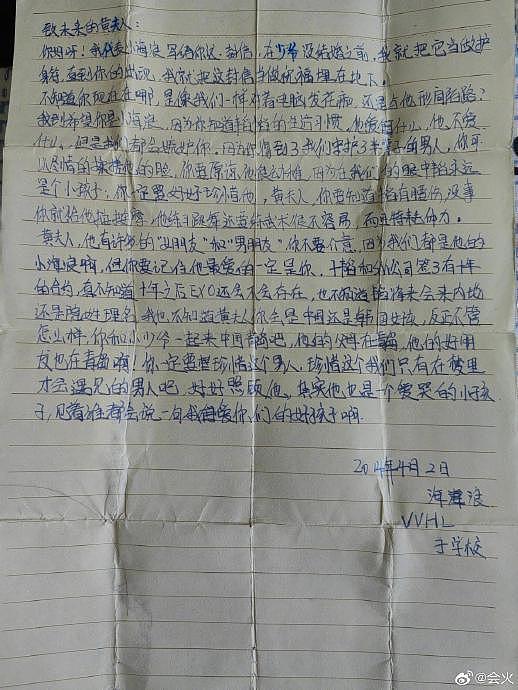 致未来的黄夫人：
你好呀！我代表小海浪写给你这封信，在少爷没结婚之前，我就把它当做护
身符，直到你的出现，我就把这封信当做祝福埋在地下。
不知道你现在在哪，是像我们一样对着电脑发花痴，还是与他形同陌路？
我到希望你是小海浪，因为你知道韬韬的生活习惯，他爱的什么，他不爱
什么，但是我们都会嫉妒你，因为你得到了我们守护了半辈子的男人，你可
以尽情的蹂躏他的脸，你要原谅他爱动，因为在我们的眼中韬永远
是个小孩子；你一定要好好珍惜他，黄夫人，你要知道韬有腰伤，没事
你就给他按按摩，他练习跳舞还要练武术很不容易，而且特耗体力。
黄夫人，他有许多的“女朋友”和“男朋友”你不要介意，因为我们都是他的
小海浪啊，但你要记住他最爱的一定是你，韬和公司签了有十年
的合约，真不知道十年之后EXO还会不会存在，也不知道韬将来会来内地
还是，我也不知道黄夫人你会是中国还是韩国女孩，反正不管
怎么样，你和小少爷一起来中国青岛吧，他的父母在青岛，他的好朋
友也在青岛啊，你一定要想珍惜这个男人，珍惜这个我们只有在梦里
才会遇见的男人吧，好好照顾他，其实他也是一个爱哭的小孩
子，见着谁都会说一句我爱你们的好孩子啊。
2014年4月2日
海浪
VVHL
于学校
@会火